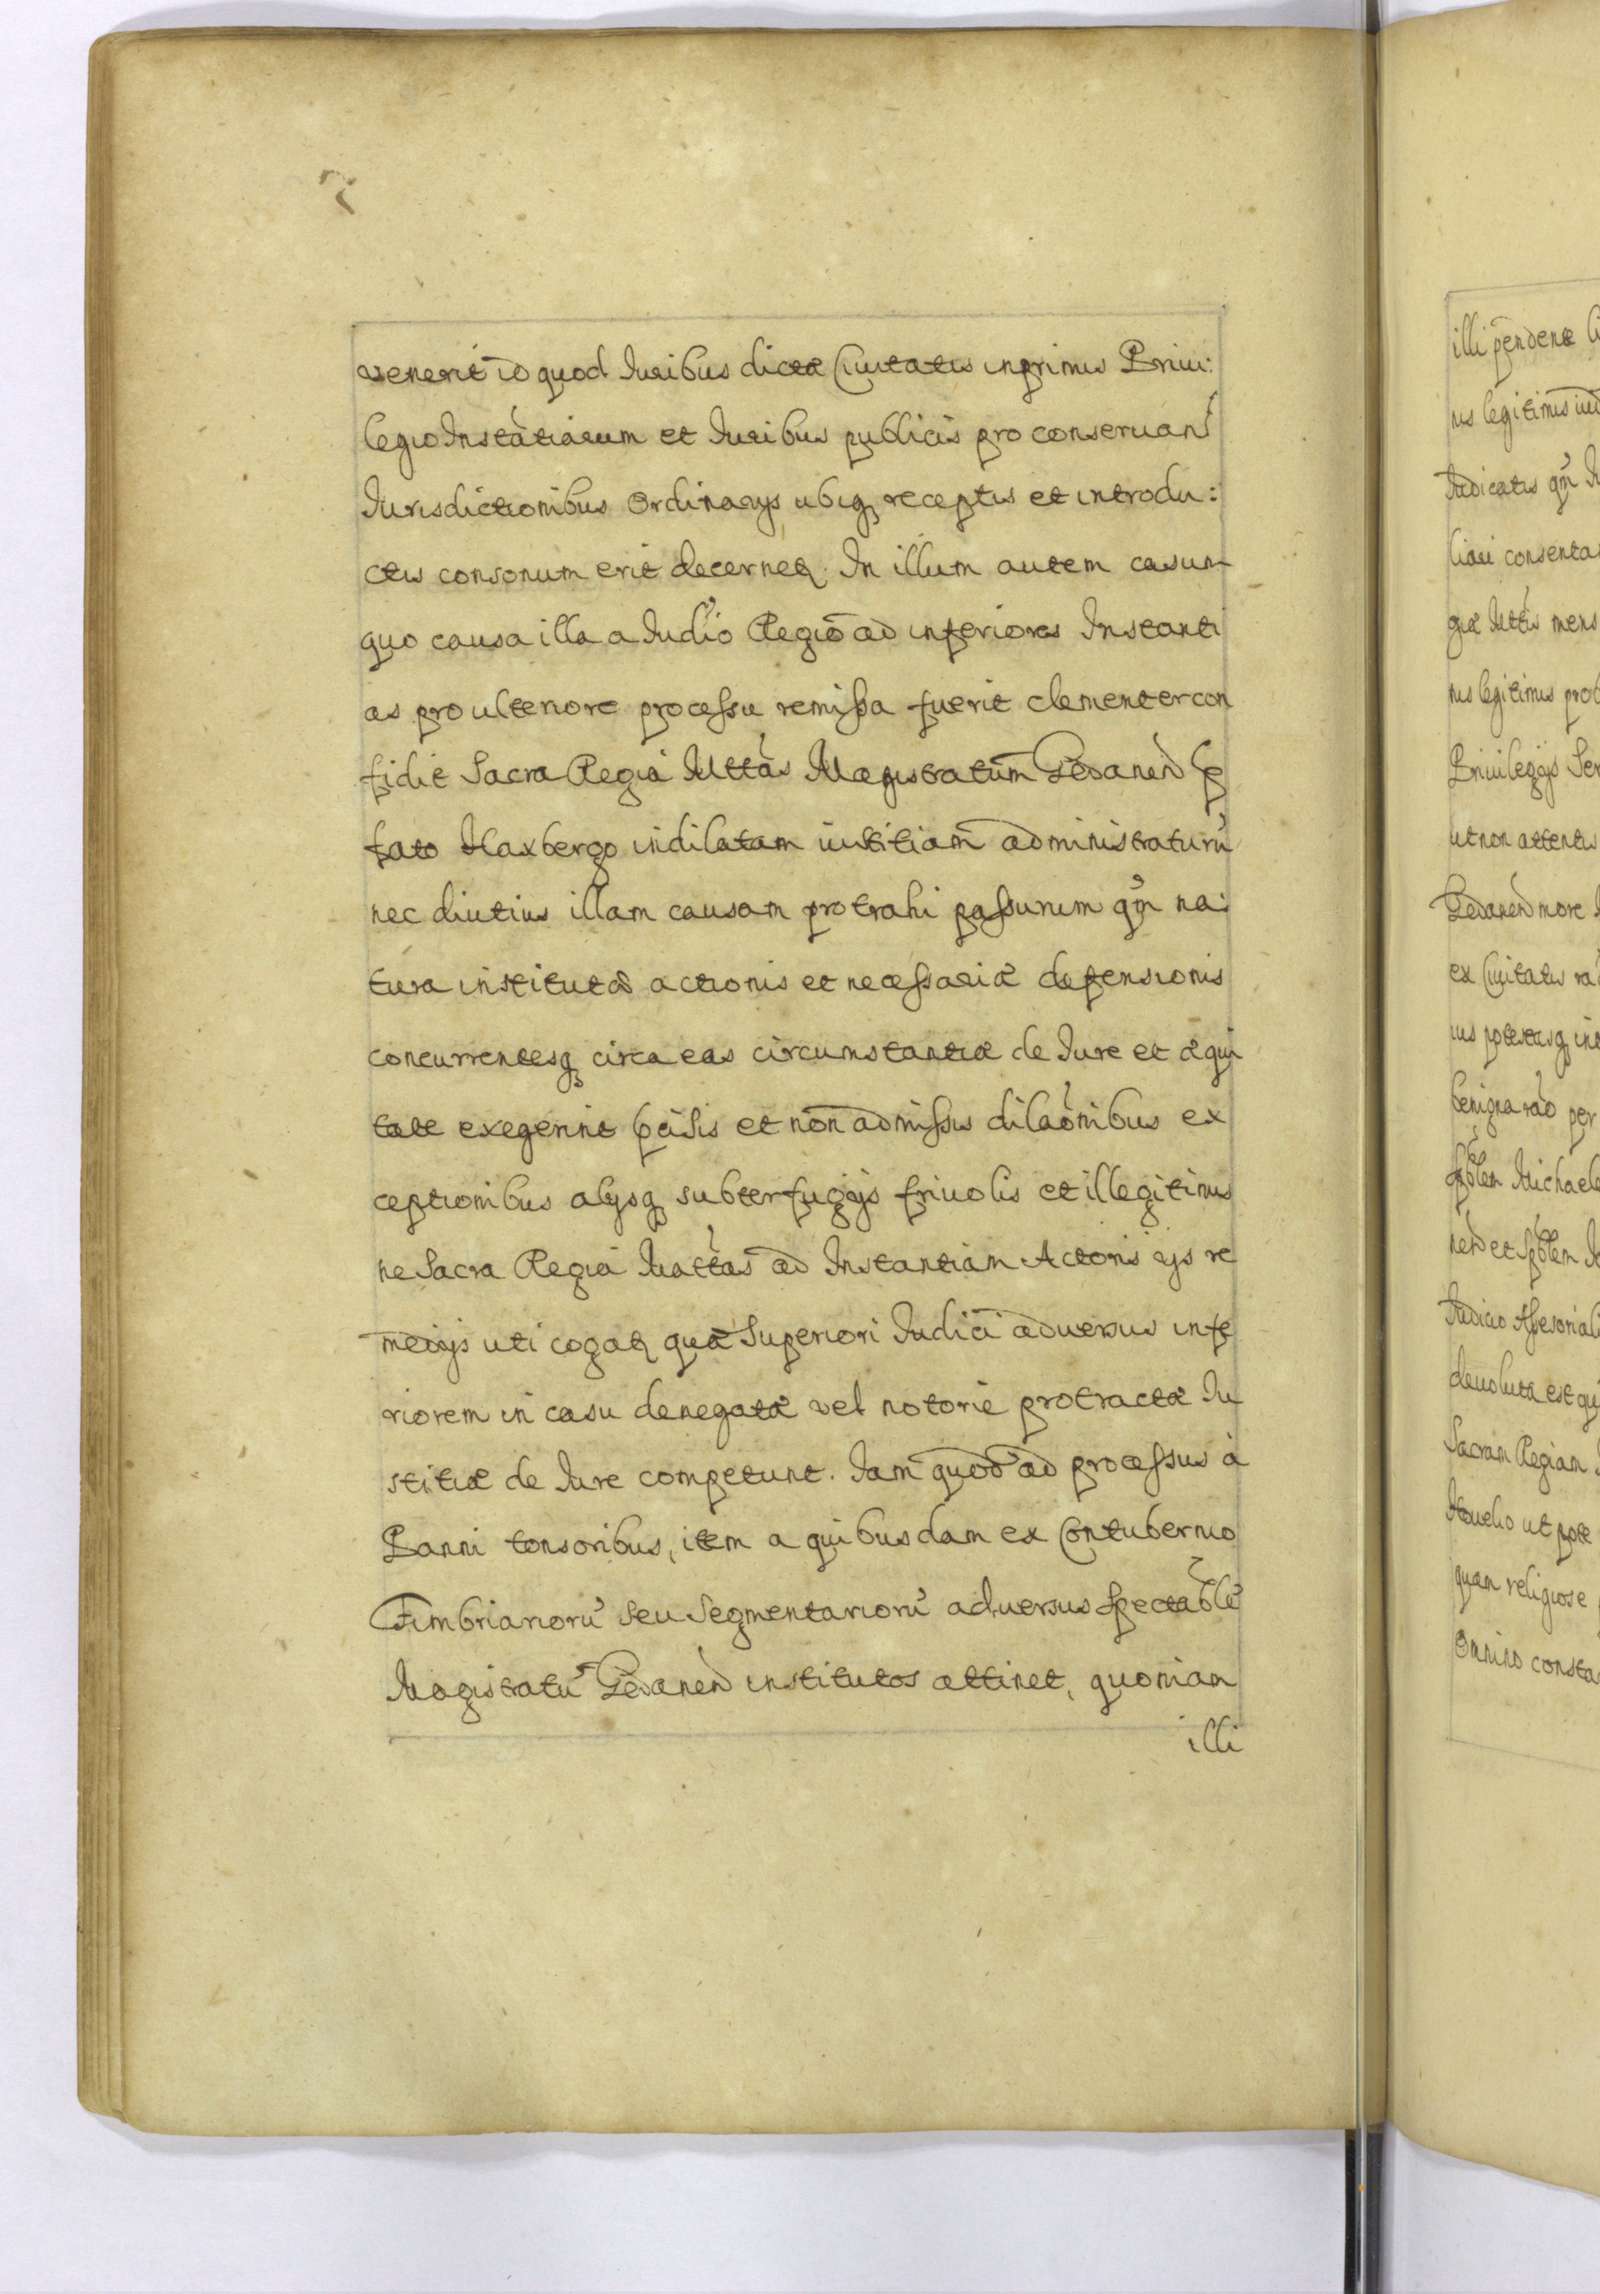 venerit id quod Iuribus dictæ Ciuitatis inprimis Priui:
legio Instātiarum et Iuribus publicis pro conseruand
Iurisdictionibus Ordinarys ubiq₃ receptis et introdu:
ctis consonum erit decerneţ. In illum autem casum
quo causa illa a Iudio Regio ad inferiores Instanti
as pro ulteriore processu remissa fuerit clementer con
fidit Sacra Regia Mttas Magistratum Gedanen
fato Haxbergo indilatam iustitiam administraturū
nec diutius illam causam protrahi passurum qm̄ na:
tura institutæ actionis et necessariæ defensionis
concurrentesq₃ circa eas circumstantiæ de Iure et æqui
tate exegerint pcisis et non admissis dilaonibus ex
ceptionibus alysq₃ subterfugijs friuolis et illegitimis
ne Sacra Regia Mattas ad Instantiam Actoris ijs re
medijs uti cogaţ quæ Superiori Iudici aduersus infe
riorem in casu denegatæ vel notorie protractæ Iu
stitiæ de Iure competunt. Iam quod ad processus à
Panni tonsoribus, item a quibusdam ex Contubernio
Fimbriariorū seu Segmentariorū aduersus Spectablē
Magistratū Gedanen institutos attinet, quoniam
illi
illi pendent
us legitimis
Iudicatis qm̄
liari consenta
giæ Mttis mens
us legitimis
Priuilegijs Ser
ut non attentis
Gedanen more
ex Ciuitatis
ius potestasq₃
benigna rao per
Spblem Michael
nen et Spblem
Iudicio Assesoriali
deuoluta est
Sacram Regiam
ut pote
quam religiose
Omnino consta